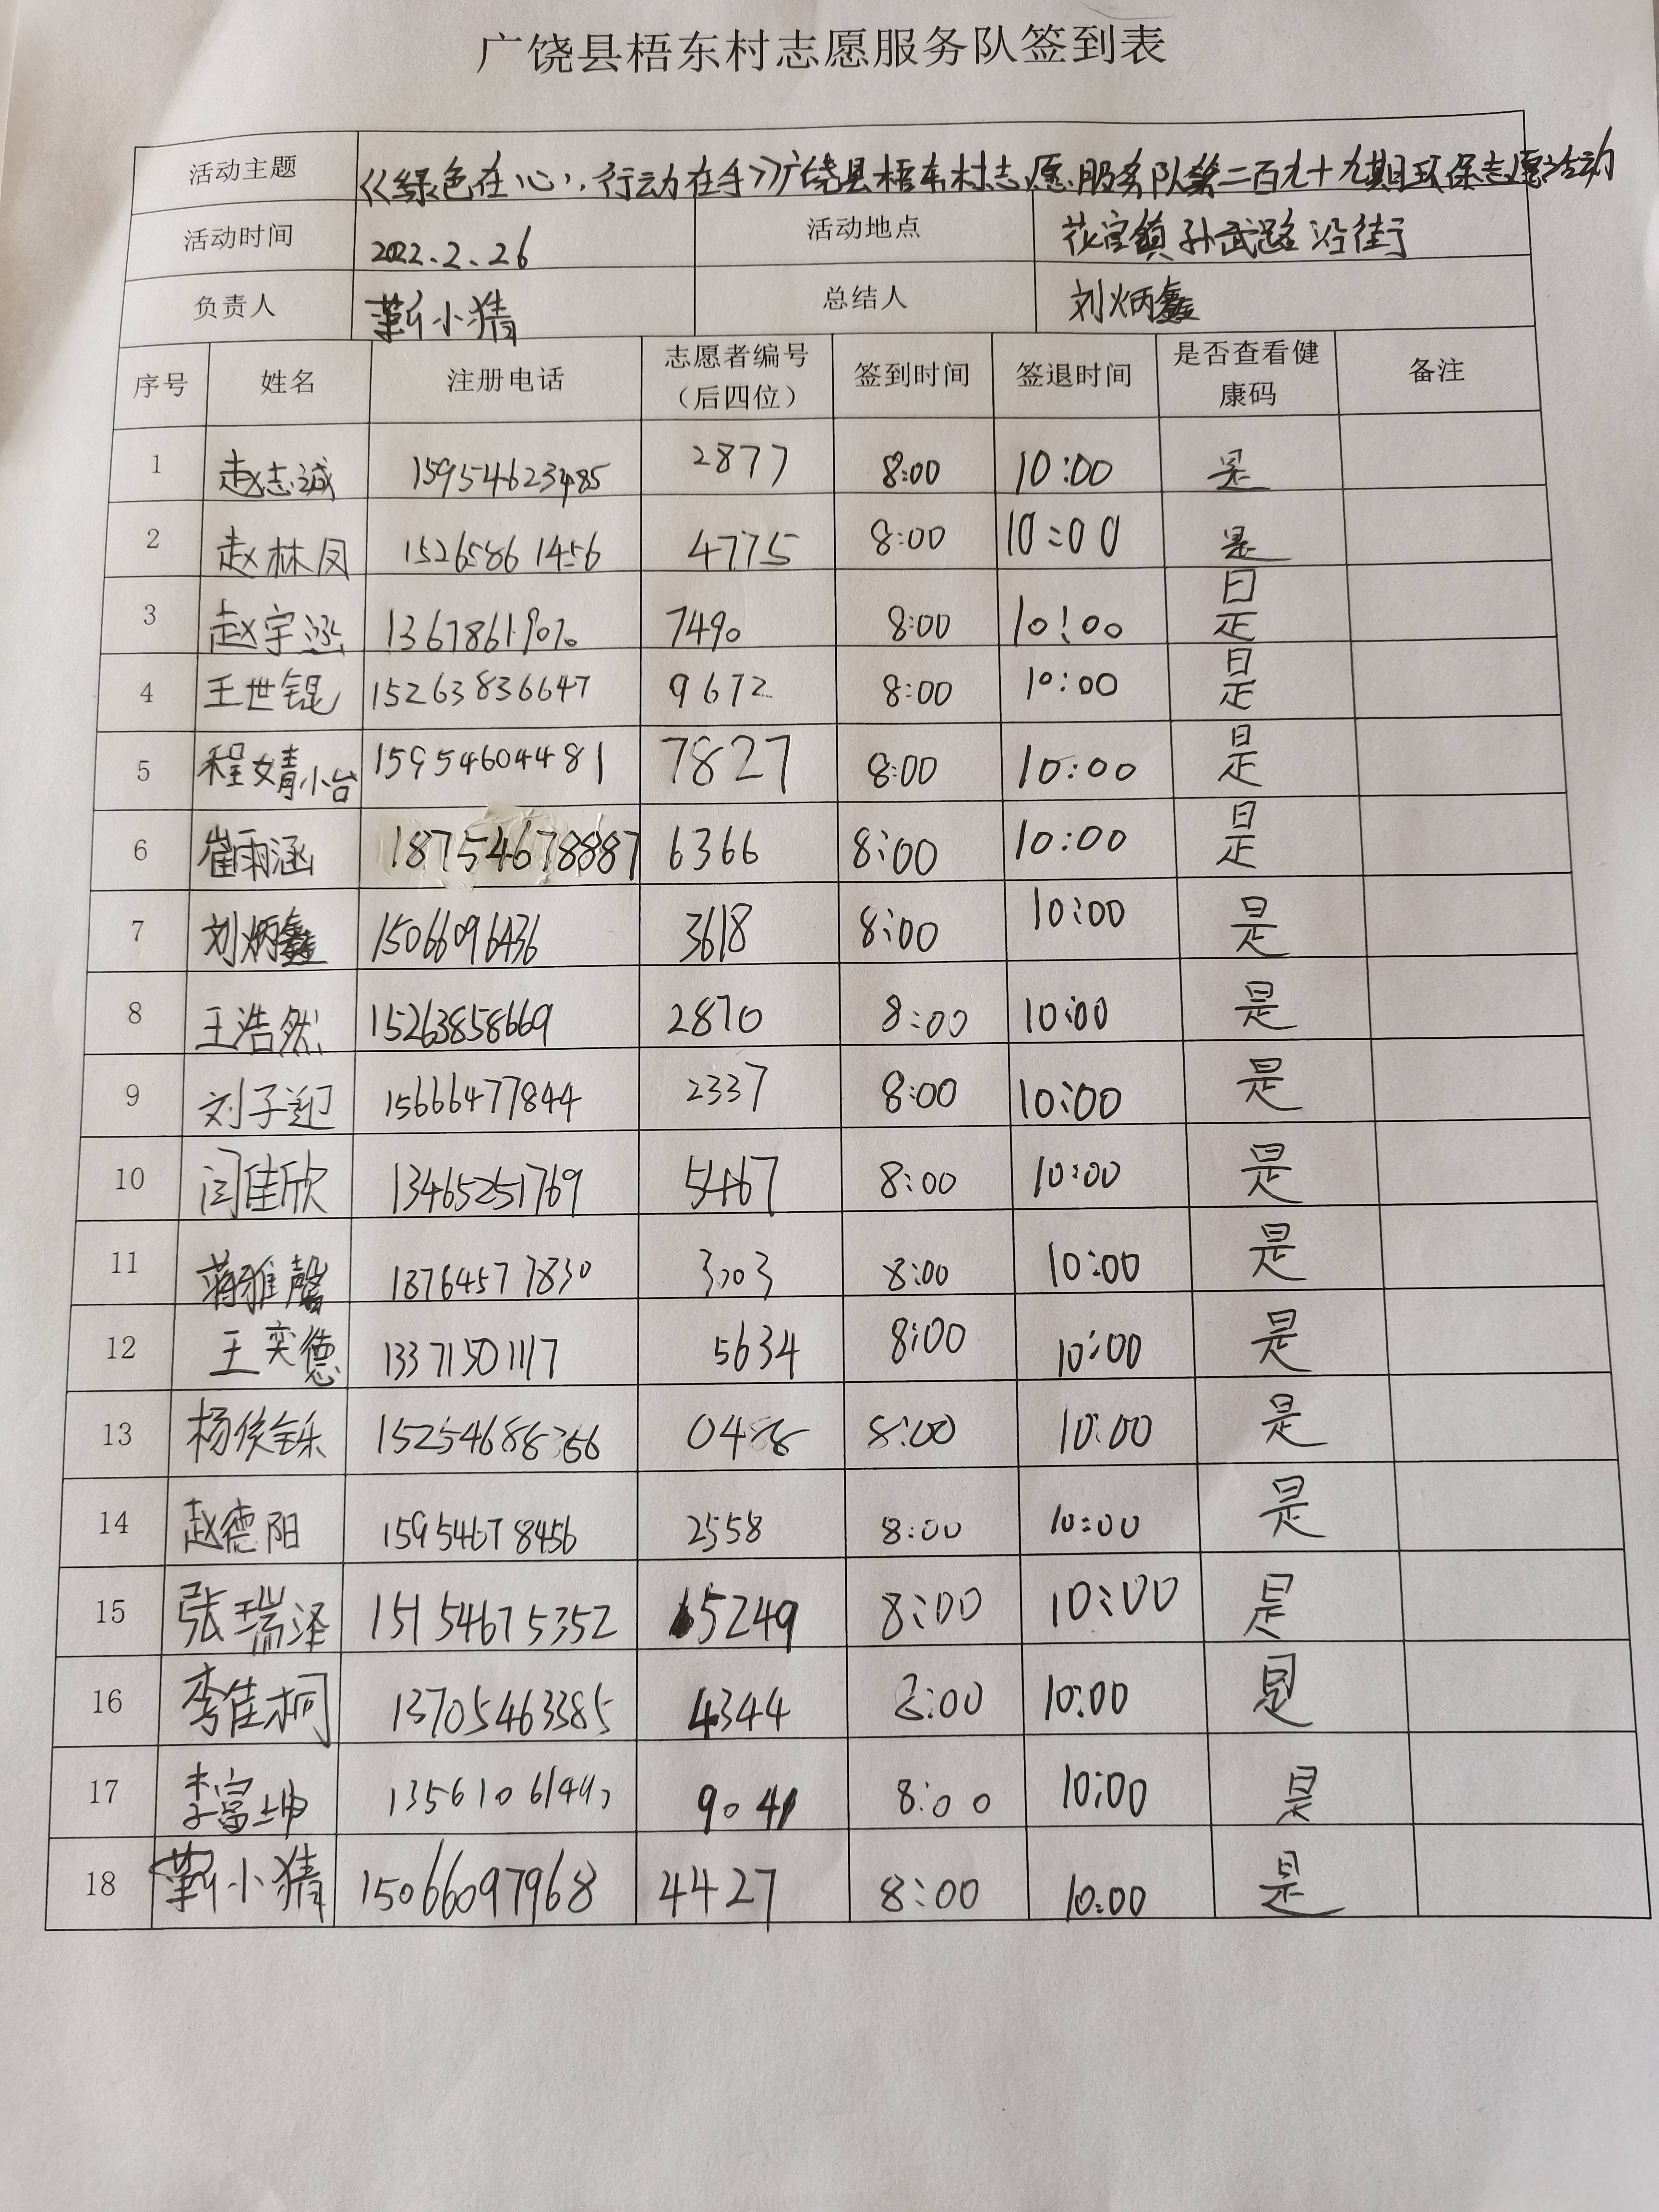 广饶县梧东村志愿服务队签到表
活动主题 《绿色在心，行动在手》广饶县梧东村志愿服务队第二百九十九期环保志愿活动
活动时间 2022.2.26 活动地点 花官镇孙武路沿街
负责人 靳小猜 总结人 刘炳鑫
序号 姓名 注册电话 志愿者编号（后四位） 签到时间 签退时间 是否查看健康码 备注
1 赵志诚 15954623485 2877 8:00 10:00 是
2 赵林凤 15265861456 4775 8:00 10:00 是
3 赵宇涵 7490 8:00 10:00 是
4 王世锟 15263836647 9672 8:00 10:00 是
5 程婧小台 15954604481 7827 8:00 10:00 是
6 崔雨涵 18754678887 6366 8:00 10:00 是
7 刘炳鑫 15066096436 3618 8:00 10:00 是
8 王浩然 15263858669 2870 8:00 10:00 是
9 刘子迎 15666477844 2337 8:00 10:00 是
10 闫佳欣 13465251769 5467 8:00 10:00 是
11 蒋雅馨 18764577830 3003 8:00 10:00 是
12 王奕德 13371501117 5634 8:00 10:00 是
13 杨俟铄 8:00 10:00 是
14 赵德阳 15954678456 2558 8:00 10:00 是
15 张瑞泽 15154675352 5249 8:00 10:00 是
16 李佳桐 13705463385 4344 8:00 10:00 是
17 李富坤 9041 8:00 10:00 是
18 靳小猜 15066097968 4427 8:00 10:00 是